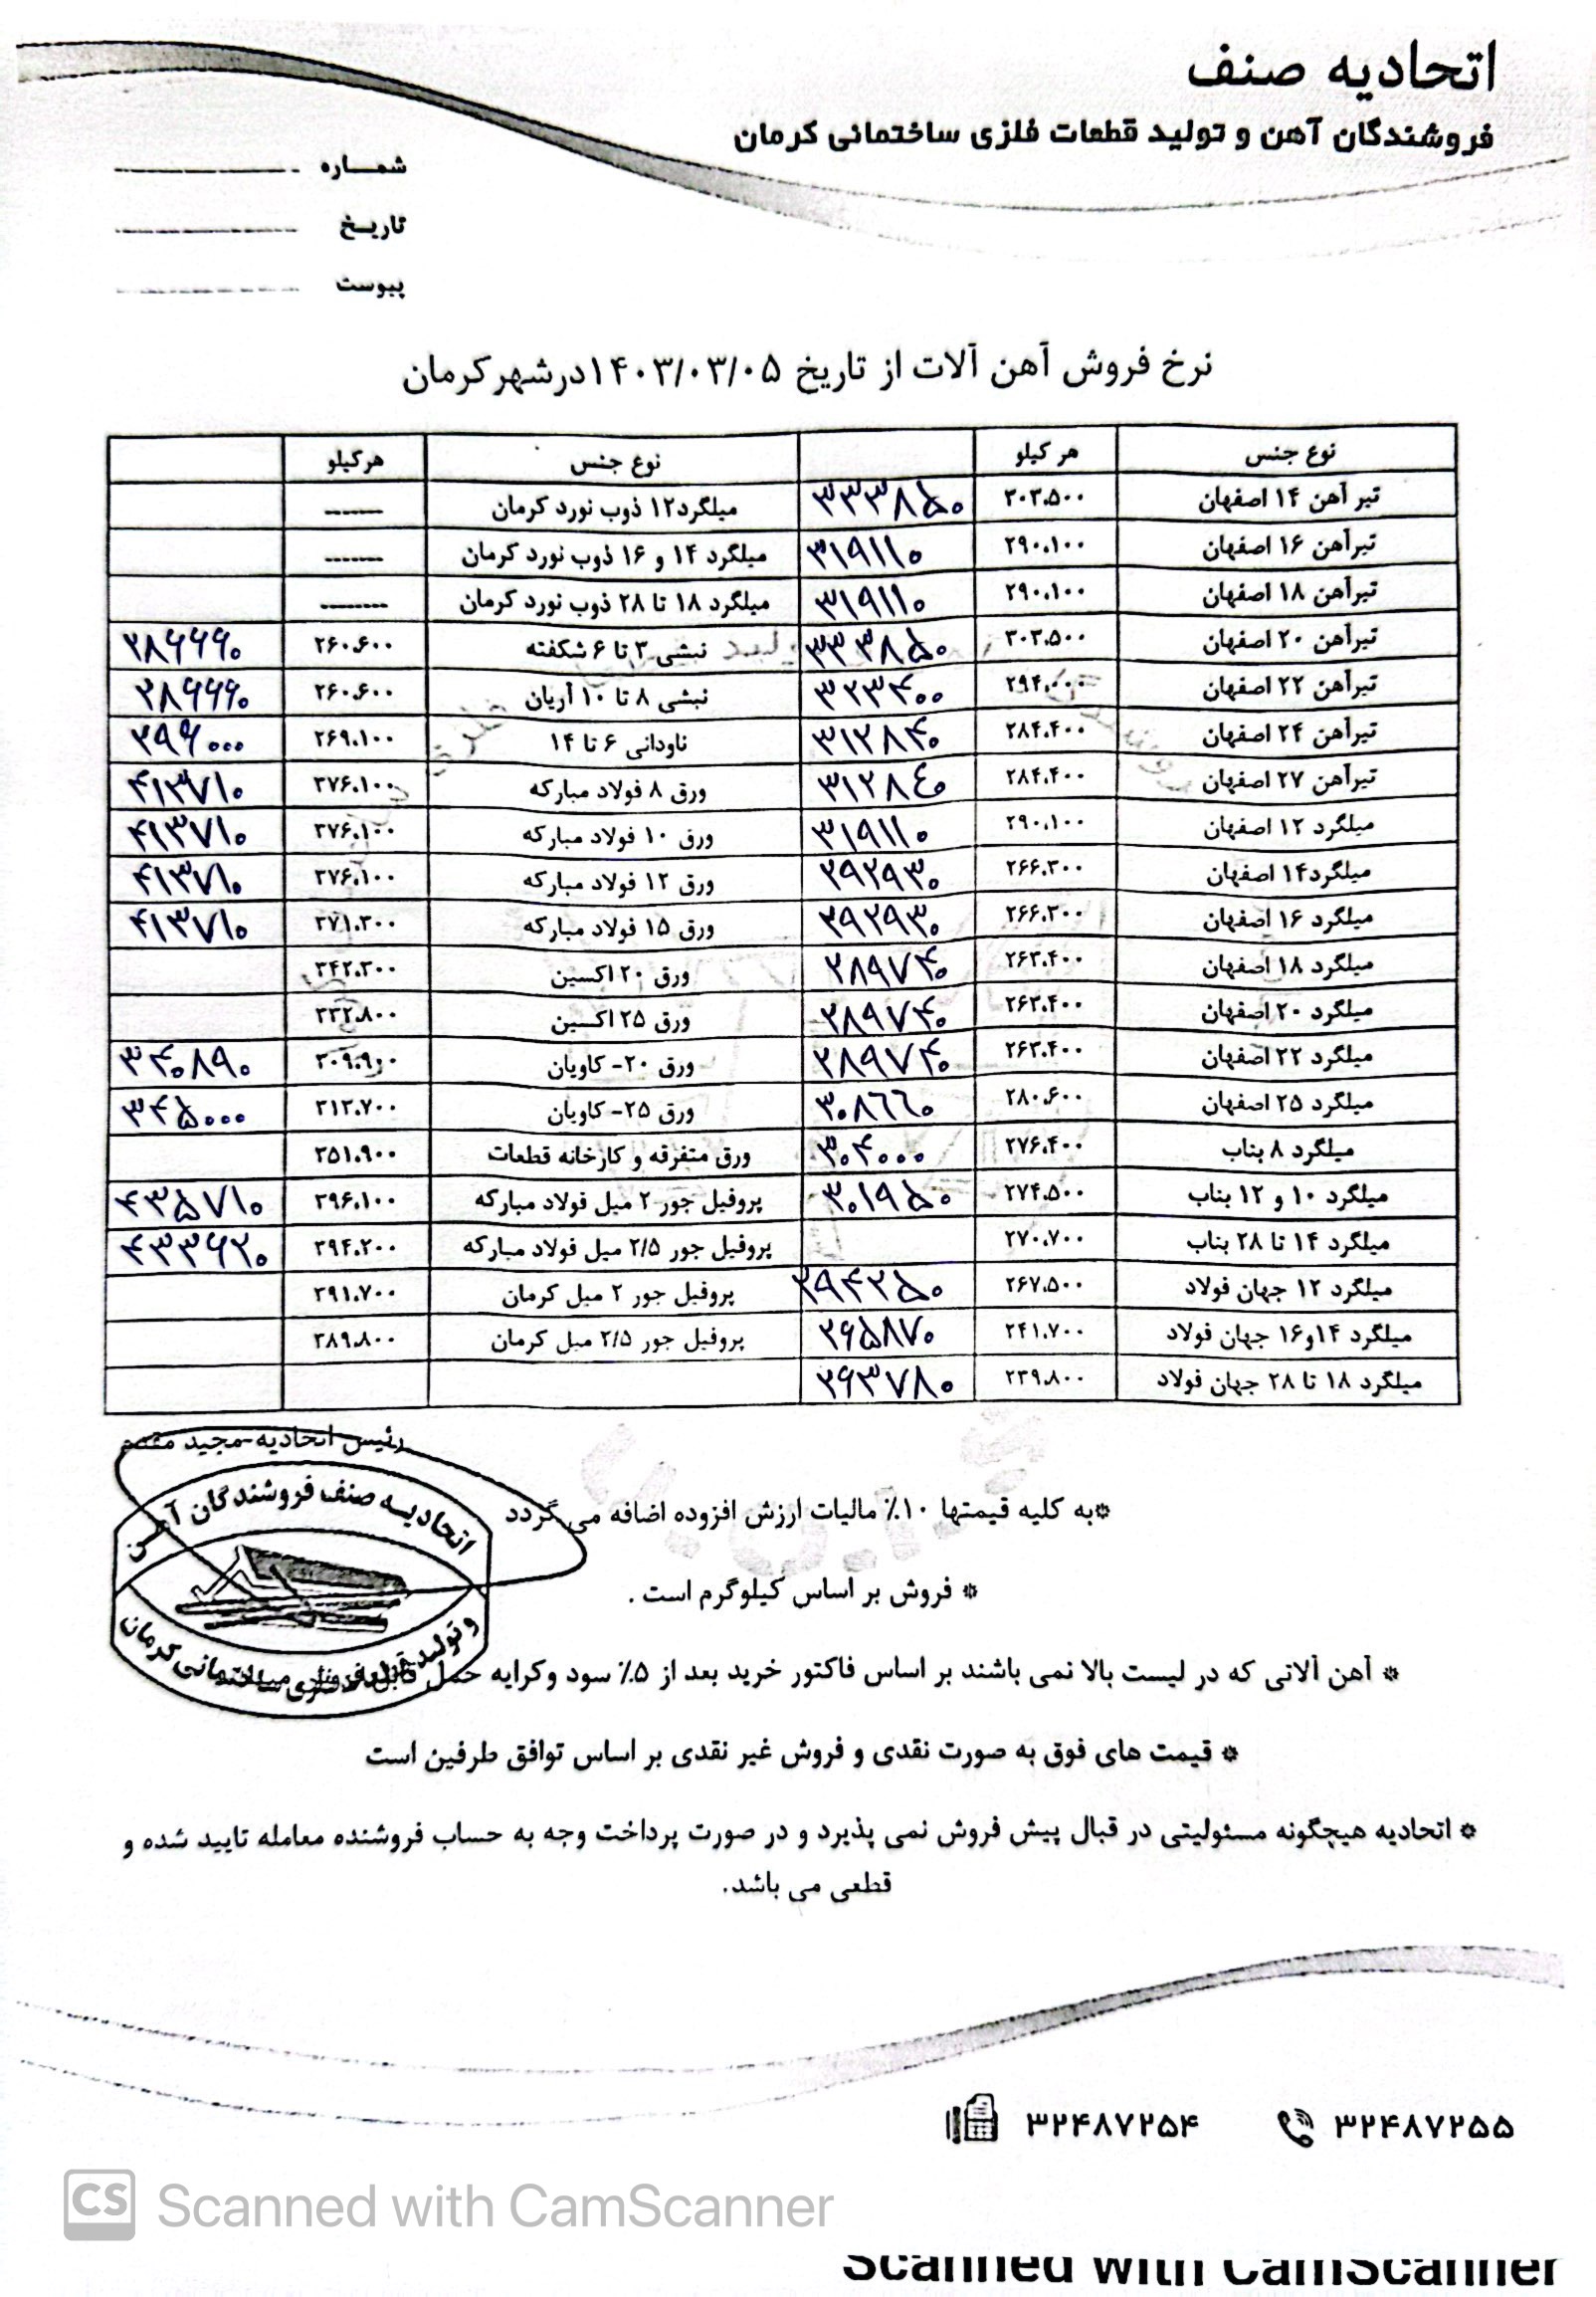 اتحادیه صنف
فروشندگان آهن و تولید قطعات فلزی ساختمانی کرمان
شماره
تاریخ
پیوست
نرخ فروش آهن آلات از تاریخ ۱۴۰۳/۰۳/۰۵ درشهرکرمان
نوع جنس هر کیلو نوع جنس هرکیلو
تیر آهن ۱۴ اصفهان ۳۰۳،۵۰۰ ۳۳۳۸۵۰ میلگرد۱۲ ذوب نورد کرمان -------
تیرآهن ۱۶ اصفهان ۲۹۰،۱۰۰ ۳۱۹۱۱۰ میلگرد ۱۴ و ۱۶ ذوب نورد کرمان -------
تیرآهن ۱۸ اصفهان ۲۹۰،۱۰۰ ۳۱۹۱۱۰ میلگرد ۱۸ تا ۲۸ ذوب نورد کرمان --------
تیرآهن ۲۰ اصفهان ۳۰۳،۵۰۰ ۳۳۳۸۵۰ نبشی ۳ تا ۶ شکفته ۲۶۰،۶۰۰ ۲۸۶۶۶۰
تیرآهن ۲۲ اصفهان ۲۹۴،۰۰۰ ۳۲۳۴۰۰ نبشی ۸ تا ۱۰ آریان ۲۶۰،۶۰۰ ۲۸۶۶۶۰
تیرآهن ۲۴ اصفهان ۲۸۴،۴۰۰ ۳۱۲۸۴۰ ناودانی ۶ تا ۱۴ ۲۶۹،۱۰۰ ۲۹۶۰۰۰
تیرآهن ۲۷ اصفهان ۲۸۴،۴۰۰ ۳۱۲۸٤۰ ورق ۸ فولاد مبارکه ۳۷۶،۱۰۰ ۴۱۳۷۱۰
میلگرد ۱۲ اصفهان ۲۹۰،۱۰۰ ۳۱۹۱۱۰ ورق ۱۰ فولاد مبارکه ۳۷۶،۱۰۰ ۴۱۳۷۱۰
میلگرد۱۴ اصفهان ۲۶۶،۳۰۰ ۲۹۲۹۳۰ ورق ۱۲ فولاد مبارکه ۳۷۶،۱۰۰ ۴۱۳۷۱۰
میلگرد ۱۶ اصفهان ۲۶۶،۳۰۰ ۲۹۲۹۳۰ ورق ۱۵ فولاد مبارکه ۳۷۱،۳۰۰ ۴۱۳۷۱۰
میلگرد ۱۸ اصفهان ۲۶۳،۴۰۰ ۲۸۹۷۴۰ ورق ۲۰ اکسین ۳۴۲،۳۰۰
میلگرد ۲۰ اصفهان ۲۶۳،۴۰۰ ۲۸۹۷۴۰ ورق ۲۵ اکسین ۳۳۲،۸۰۰
میلگرد ۲۲ اصفهان ۲۶۳،۴۰۰ ۲۸۹۷۴۰ ورق ۲۰- کاویان ۳۰۹،۹۰۰ ۳۴۰۸۹۰
میلگرد ۲۵ اصفهان ۲۸۰،۶۰۰ ۳۰۸٦٦۰ ورق ۲۵- کاویان ۳۱۳،۷۰۰ ۳۴۵۰۰۰
میلگرد ۸ بناب ۲۷۶،۴۰۰ ۳۰۴۰۰۰ ورق متفرقه و کارخانه قطعات ۳۵۱،۹۰۰
میلگرد ۱۰ و ۱۲ بناب ۲۷۴،۵۰۰ ۳۰۱۹۵۰ پروفیل جور ۲ میل فولاد مبارکه ۳۹۶،۱۰۰ ۴۳۵۷۱۰
میلگرد ۱۴ تا ۲۸ بناب ۲۷۰،۷۰۰ پروفیل جور ۲/۵ میل فولاد مبارکه ۳۹۴،۲۰۰ ۴۳۳۶۲۰
میلگرد ۱۲ جهان فولاد ۲۶۷،۵۰۰ ۲۹۴۲۵۰ پروفیل جور ۲ میل کرمان ۳۹۱،۷۰۰
میلگرد ۱۴و۱۶ جهان فولاد ۲۴۱،۷۰۰ ۲۶۵۸۷۰ پروفیل جور ۲/۵ میل کرمان ۳۸۹،۸۰۰
میلگرد ۱۸ تا ۲۸ جهان فولاد ۲۳۹،۸۰۰ ۲۶۳۷۸۰
رئیس اتحادیه-مجید مقدم
اتحادیه صنف فروشندگان آهن
و تولید قطعات فلزی ساختمانی کرمان
*به کلیه قیمتها ۱۰٪ مالیات ارزش افزوده اضافه می گردد
* فروش بر اساس کیلوگرم است .
* آهن آلاتی که در لیست بالا نمی باشند بر اساس فاکتور خرید بعد از ۵٪ سود وکرایه حمل قابل فروش میباشد
* قیمت های فوق به صورت نقدی و فروش غیر نقدی بر اساس توافق طرفین است
* اتحادیه هیچگونه مسئولیتی در قبال پیش فروش نمی پذیرد و در صورت پرداخت وجه به حساب فروشنده معامله تایید شده و
قطعی می باشد.
۳۲۴۸۷۲۵۵ ۳۲۴۸۷۲۵۴
CS Scanned with CamScanner
Scanned with CamScanner